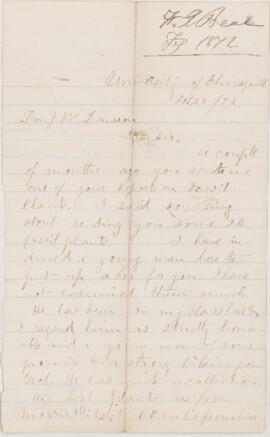 W. J. Beal
1872
University of Chicago
Dr. J. W. Dawson
Dear Sir.
A couple
of months ago you sent me
one of your reports on Fossil
Plants. I said something
about sending you some Ill.
fossil plants. I have in-
duced a young man here to
put up a box for you. I have
not examined them much.
He has been in my classes &
I regard him as strictly hono-
able and a young man of some
promise & a strong liking for
Geol. He has quite a collection.
His best plants are from
Morris, Ill. about 60 miles from here